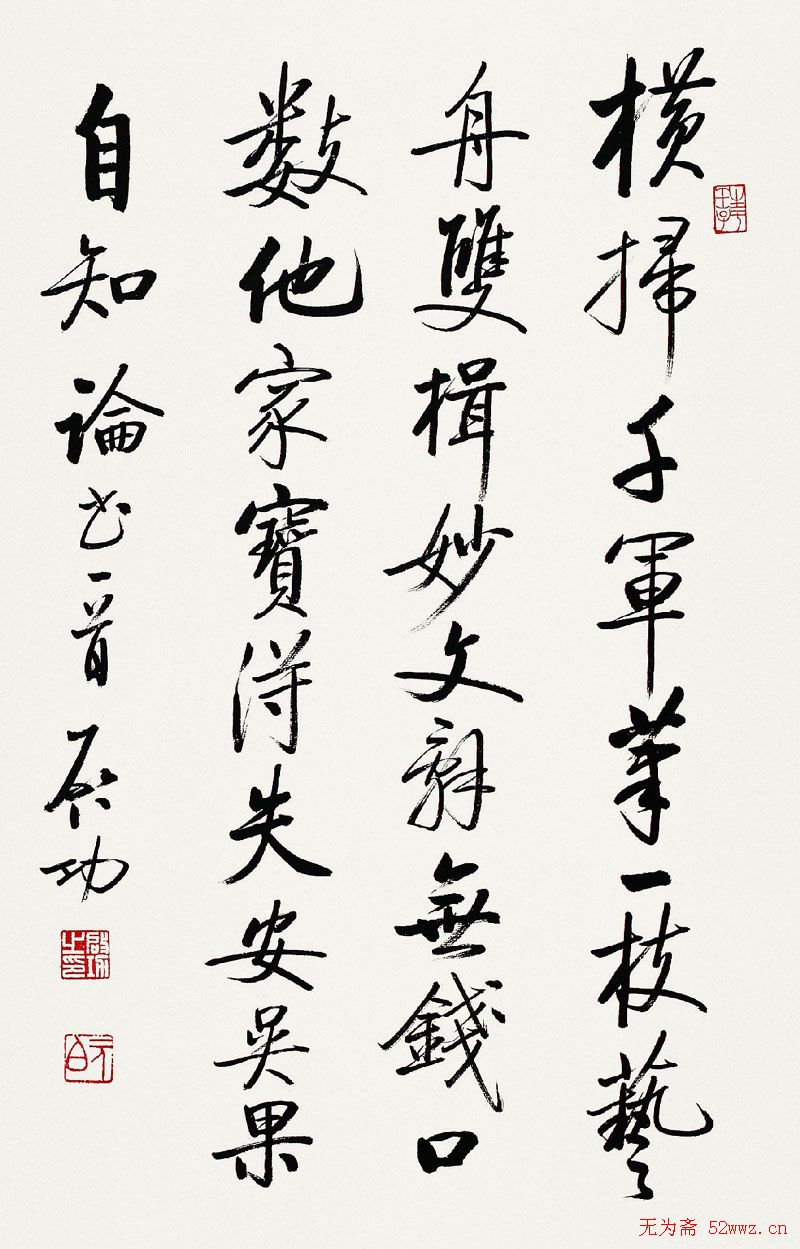 橫掃千軍筆一枝藝
舟雙楫妙文辭無錢口
數他家寶得失安吳果
自知 論書一首 启功
啟功之印
元白
无为斋 52wwz.cn